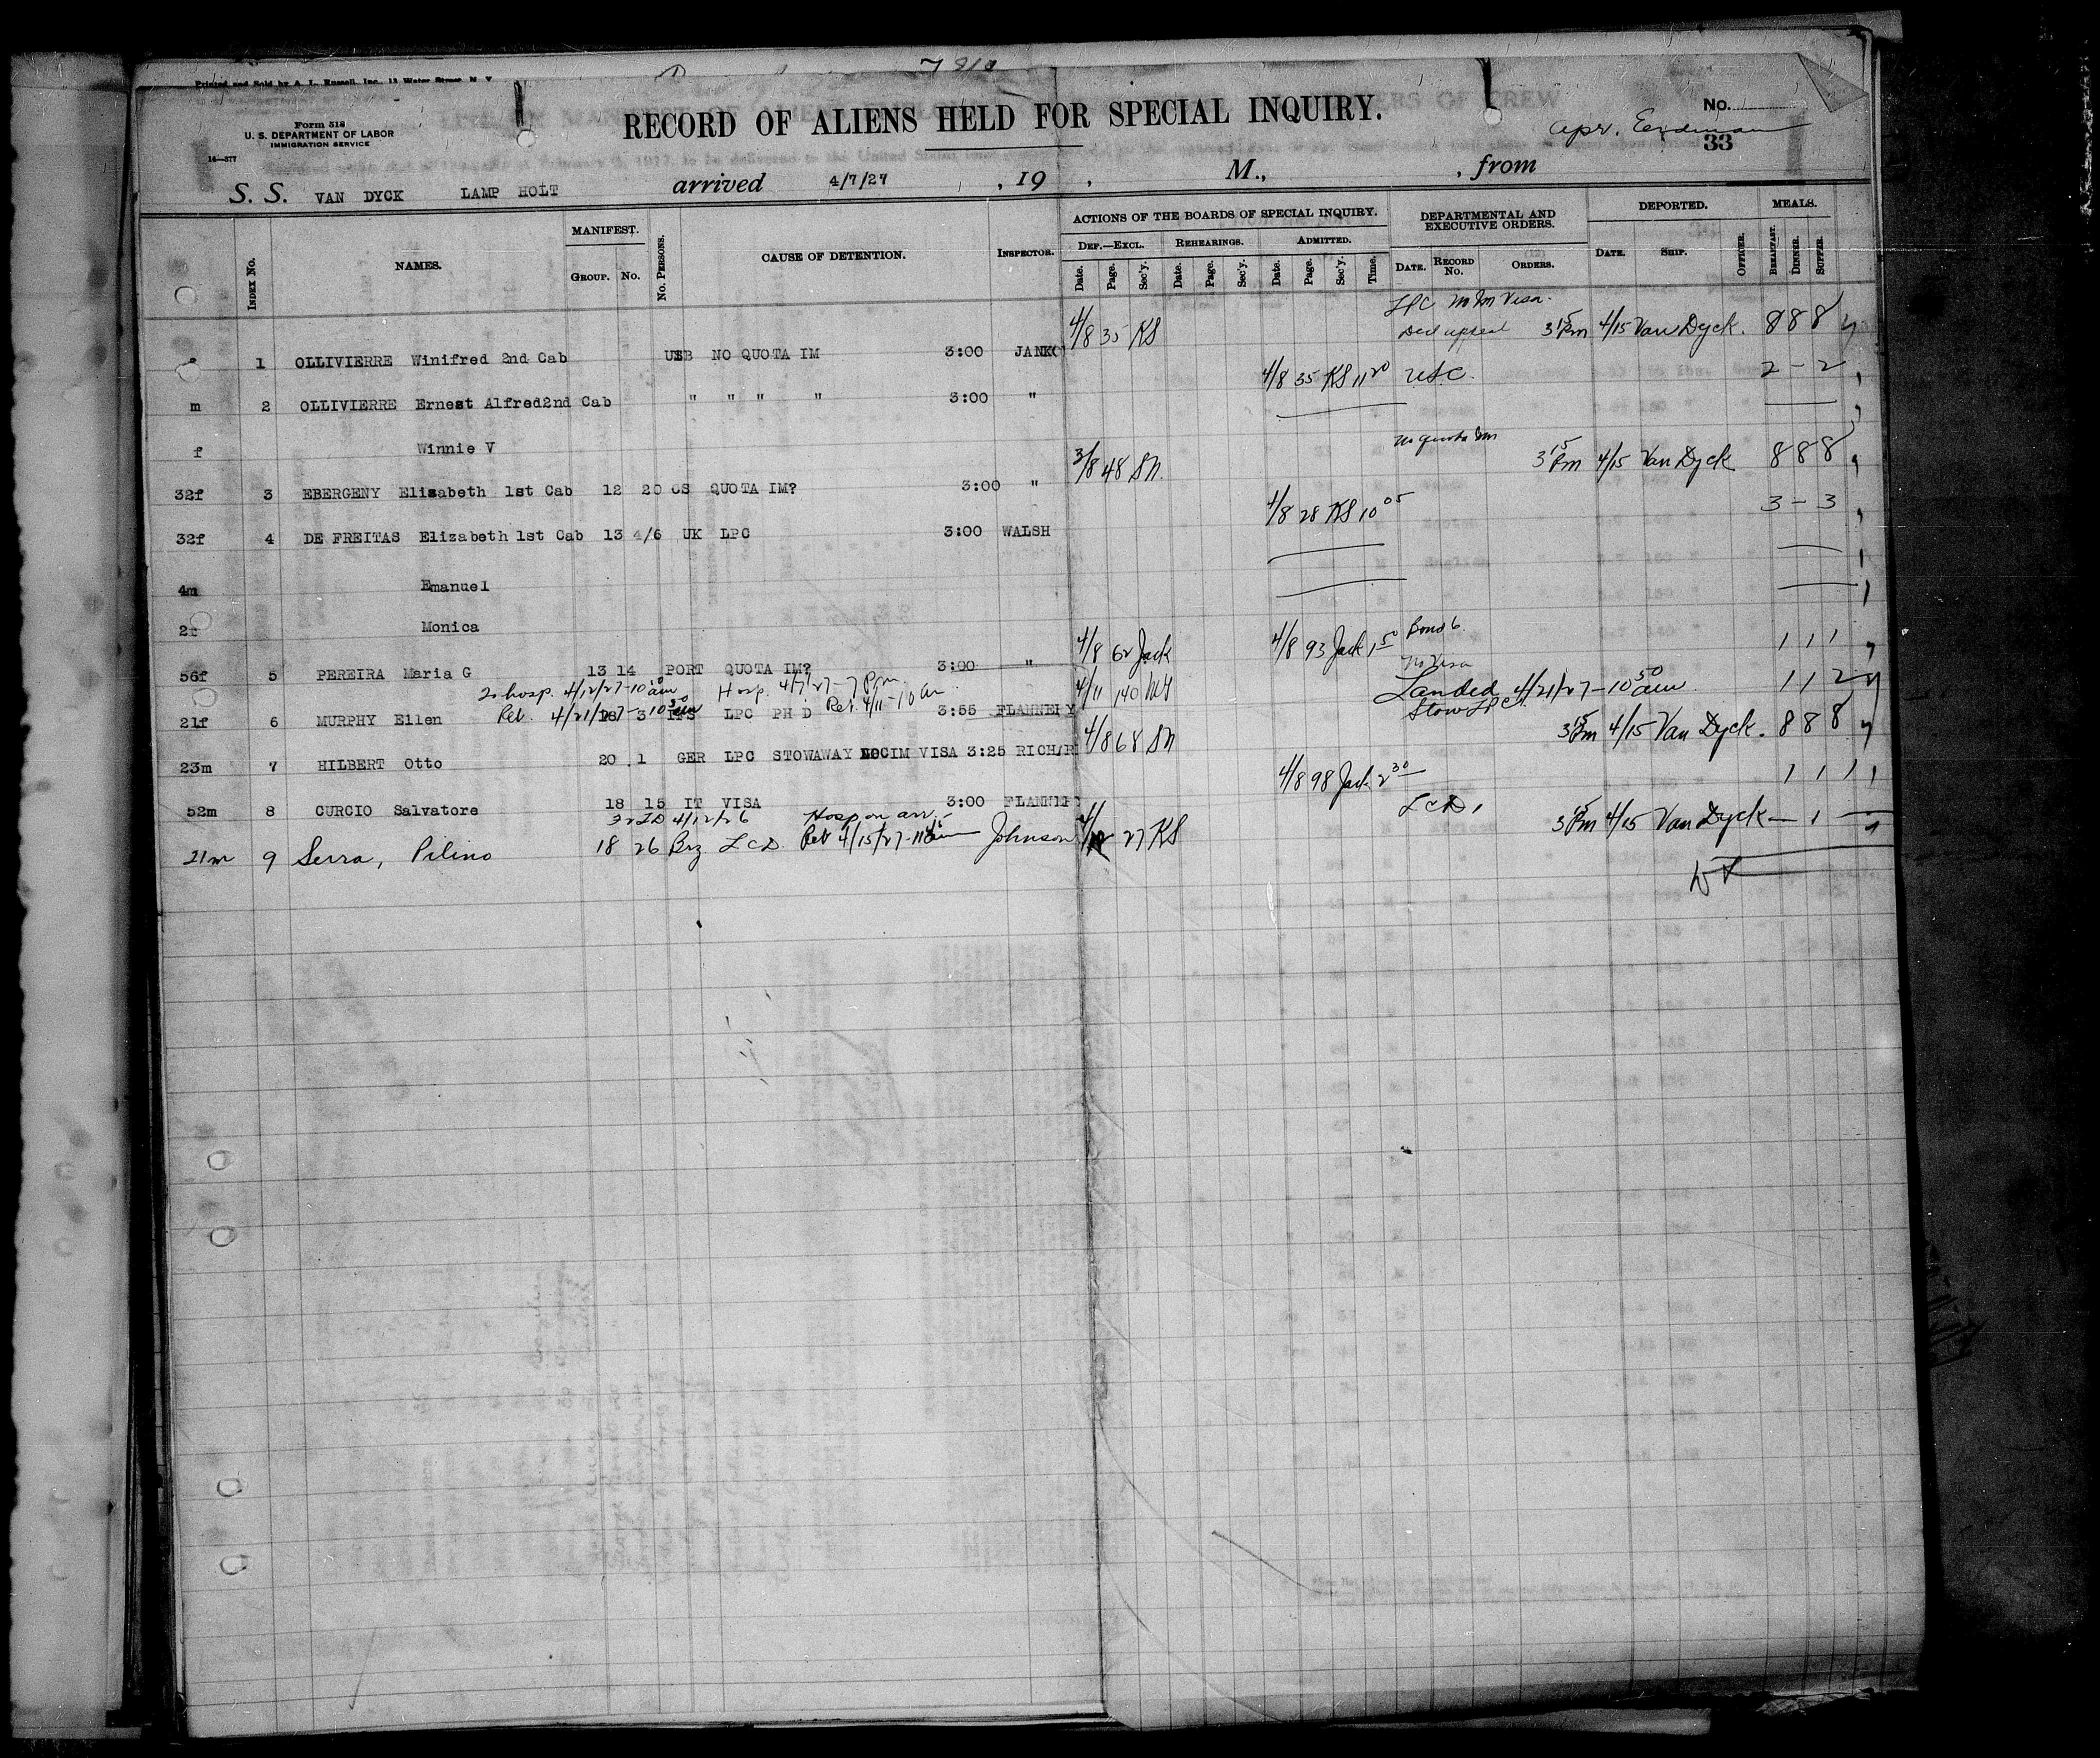 Printed and Sold by A. L. Russell, Inc., 13 Water Street N. Y.
Form 518
U. S. DEPARTMENT OF LABOR
IMMIGRATION SERVICE
16—377
RECORD OF ALIENS HELD FOR SPECIAL INQUIRY.
No.
33
S. S. VAN DYCK LAMP HOLT arrived 4/7/27 , 19 , M., , from
INDEX No. NAMES. MANIFEST. GROUP. No. No. PERSONS. CAUSE OF DETENTION. INSPECTOR. ACTIONS OF THE BOARDS OF SPECIAL INQUIRY. DEF.—EXCL. Date. Page. Sec'y. REHEARINGS. Date. Page. Sec'y. ADMITTED. Date. Page. Sec'y. Time. DEPARTMENTAL AND EXECUTIVE ORDERS. DATE. RECORD No. ORDERS. DEPORTED. DATE. SHIP. OFFICER. MEALS. BREAKFAST. DINNER. SUPPER.
LPC no Im Visa.
1 OLLIVIERRE Winifred 2nd Cab NO QUOTA IM 3:00 4/8 35 KS 3 15 Pm 4/15 Van Dyck. 8 8 8
m 2 OLLIVIERRE Ernest Alfred 2nd Cab " " " " 3:00 " 4/8 35 KS 11 20 USC. 2 - 2
f Winnie V
no quota Im
32f 3 EBERGENY Elisabeth 1st Cab 12 20 CS QUOTA IM? 3:00 " 3/8 48 SN. 3 15 Pm 4/15 Van Dyck 8 8 8
32f 4 DE FREITAS Elizabeth 1st Cab 13 4/6 UK LPC 3:00 WALSH 4/8 28 KS 10 05 3 - 3
4m Emanuel
2f Monica
56f 5 PEREIRA Maria G 13 14 PORT QUOTA IM? 3:00 " 4/8 62 Jack 4/8 93 Jack 1 50 Bond 6. 1 1 1
no Visa
To hosp. 4/12/27-10 am Hosp. 4/7/27-7 Pm.
Ret. 4/21/27-10 30 am Ret. 4/11-10 am
21f 6 MURPHY Ellen 18 3 LPC PH D 3:55 FLANNERY 4/11 140 Landed 4/21/27-10 50 am. 1 1 2
Stow LPC
23m 7 HILBERT Otto 20 1 GER LPC STOWAWAY VISA 3:25 RICHAR 4/8 68 SN 3 15 Pm 4/15 Van Dyck. 8 8 8
52m 8 CURCIO Salvatore 18 15 IT VISA 3:00 FLANNER 4/8 98 Jack 2 30 1 1 1
4/12/26 Hosp on arr. LCD,
21m 9 Serra, Pilino 18 26 Brz LCD Ret 4/15/27-11 am Johnson 27 KS 3 15 Pm 4/15 Van Dyck — 1 —